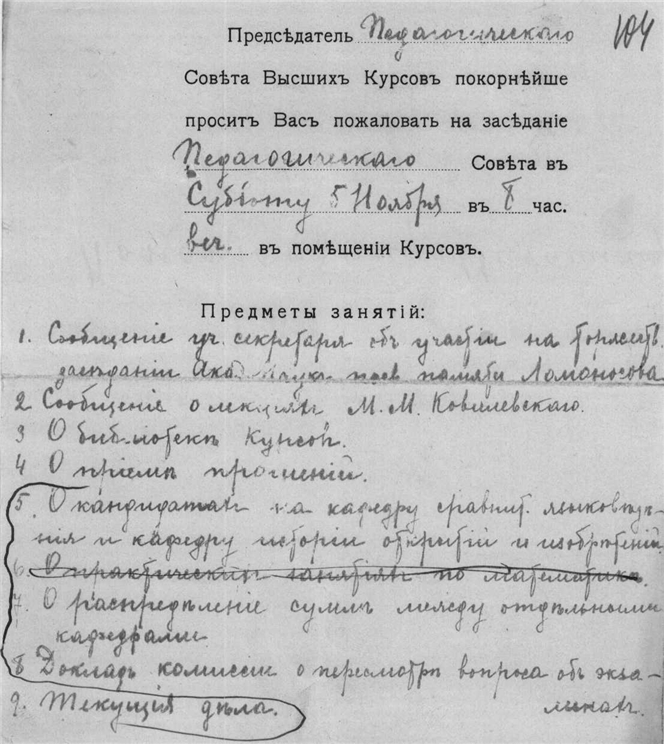 Предсѣдатель Педагогическаго 104
Совѣта Высшихъ Курсовъ покорнѣйше
проситъ Васъ пожаловать на засѣданіе
Педагогическаго Совѣта въ
Субботу 5 Ноября въ 8 час.
веч. въ помѣщеніи Курсовъ.
Предметы занятій:
1. Сообщеніе уч. секретаря объ участіи на торжеств.
засѣданіи Акад. Наукъ посв. памяти Ломоносова
2 Сообщеніе о лекціяхъ М. М. Ковалевскаго.
3 О библіотекѣ Курсовъ.
4 О пріемѣ прошеній.
5. О кандидатахъ на кафедру сравнит. языковѣдѣ-
нія и кафедру исторіи открытій и изобрѣтеній.
6. О практическихъ занятіяхъ по математикѣ.
7. О распредѣленіе суммъ между отдѣльными
кафедрами.
8 Докладъ комиссіи о пересмотрѣ вопроса объ экза-
9. Текущія дѣла. менахъ.